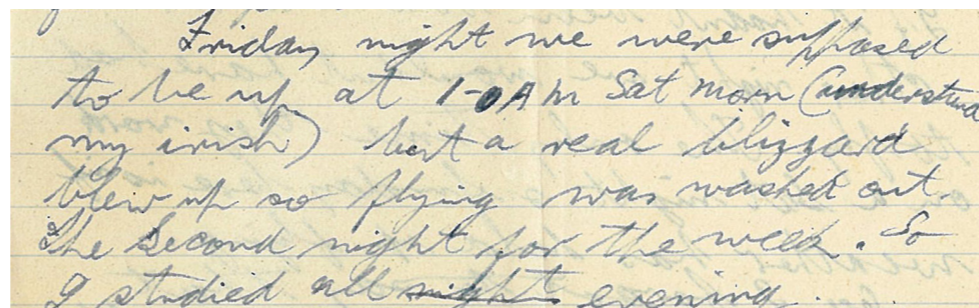 Friday night we were supposed
to be up at 1-0 AM Sat morn (understand
my irish) but a real blizzard
blew up so flying was washed out.
The second night for the week. So
I studied all night evening.